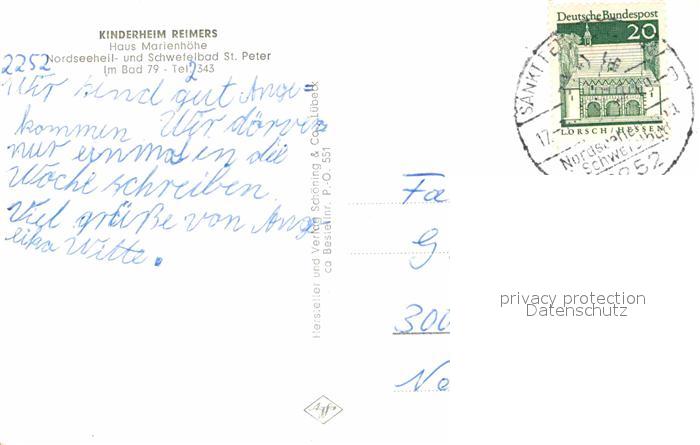 KINDERHEIM REIMERS
Haus Marienhöhe
Nordseeheil- und Schwefelbad St. Peter
Im Bad 79 - Tel. 2343
2252
Wir sind gut Ange=
kommen Wir dörven
nur einmal in die
Woche schreiben.
Viel grüße von Ang
elika Witte.
Hersteller und Verlag Schöning & Co., Lübeck
Bestellnr. P.-O. 551
Deutsche Bundespost
20
LORSCH/HESSEN
SANKT PE
17.
Nordseeheil-
Schwefelbad
2252
Fa
G
300
Ne
Agfa
privacy protection
Datenschutz